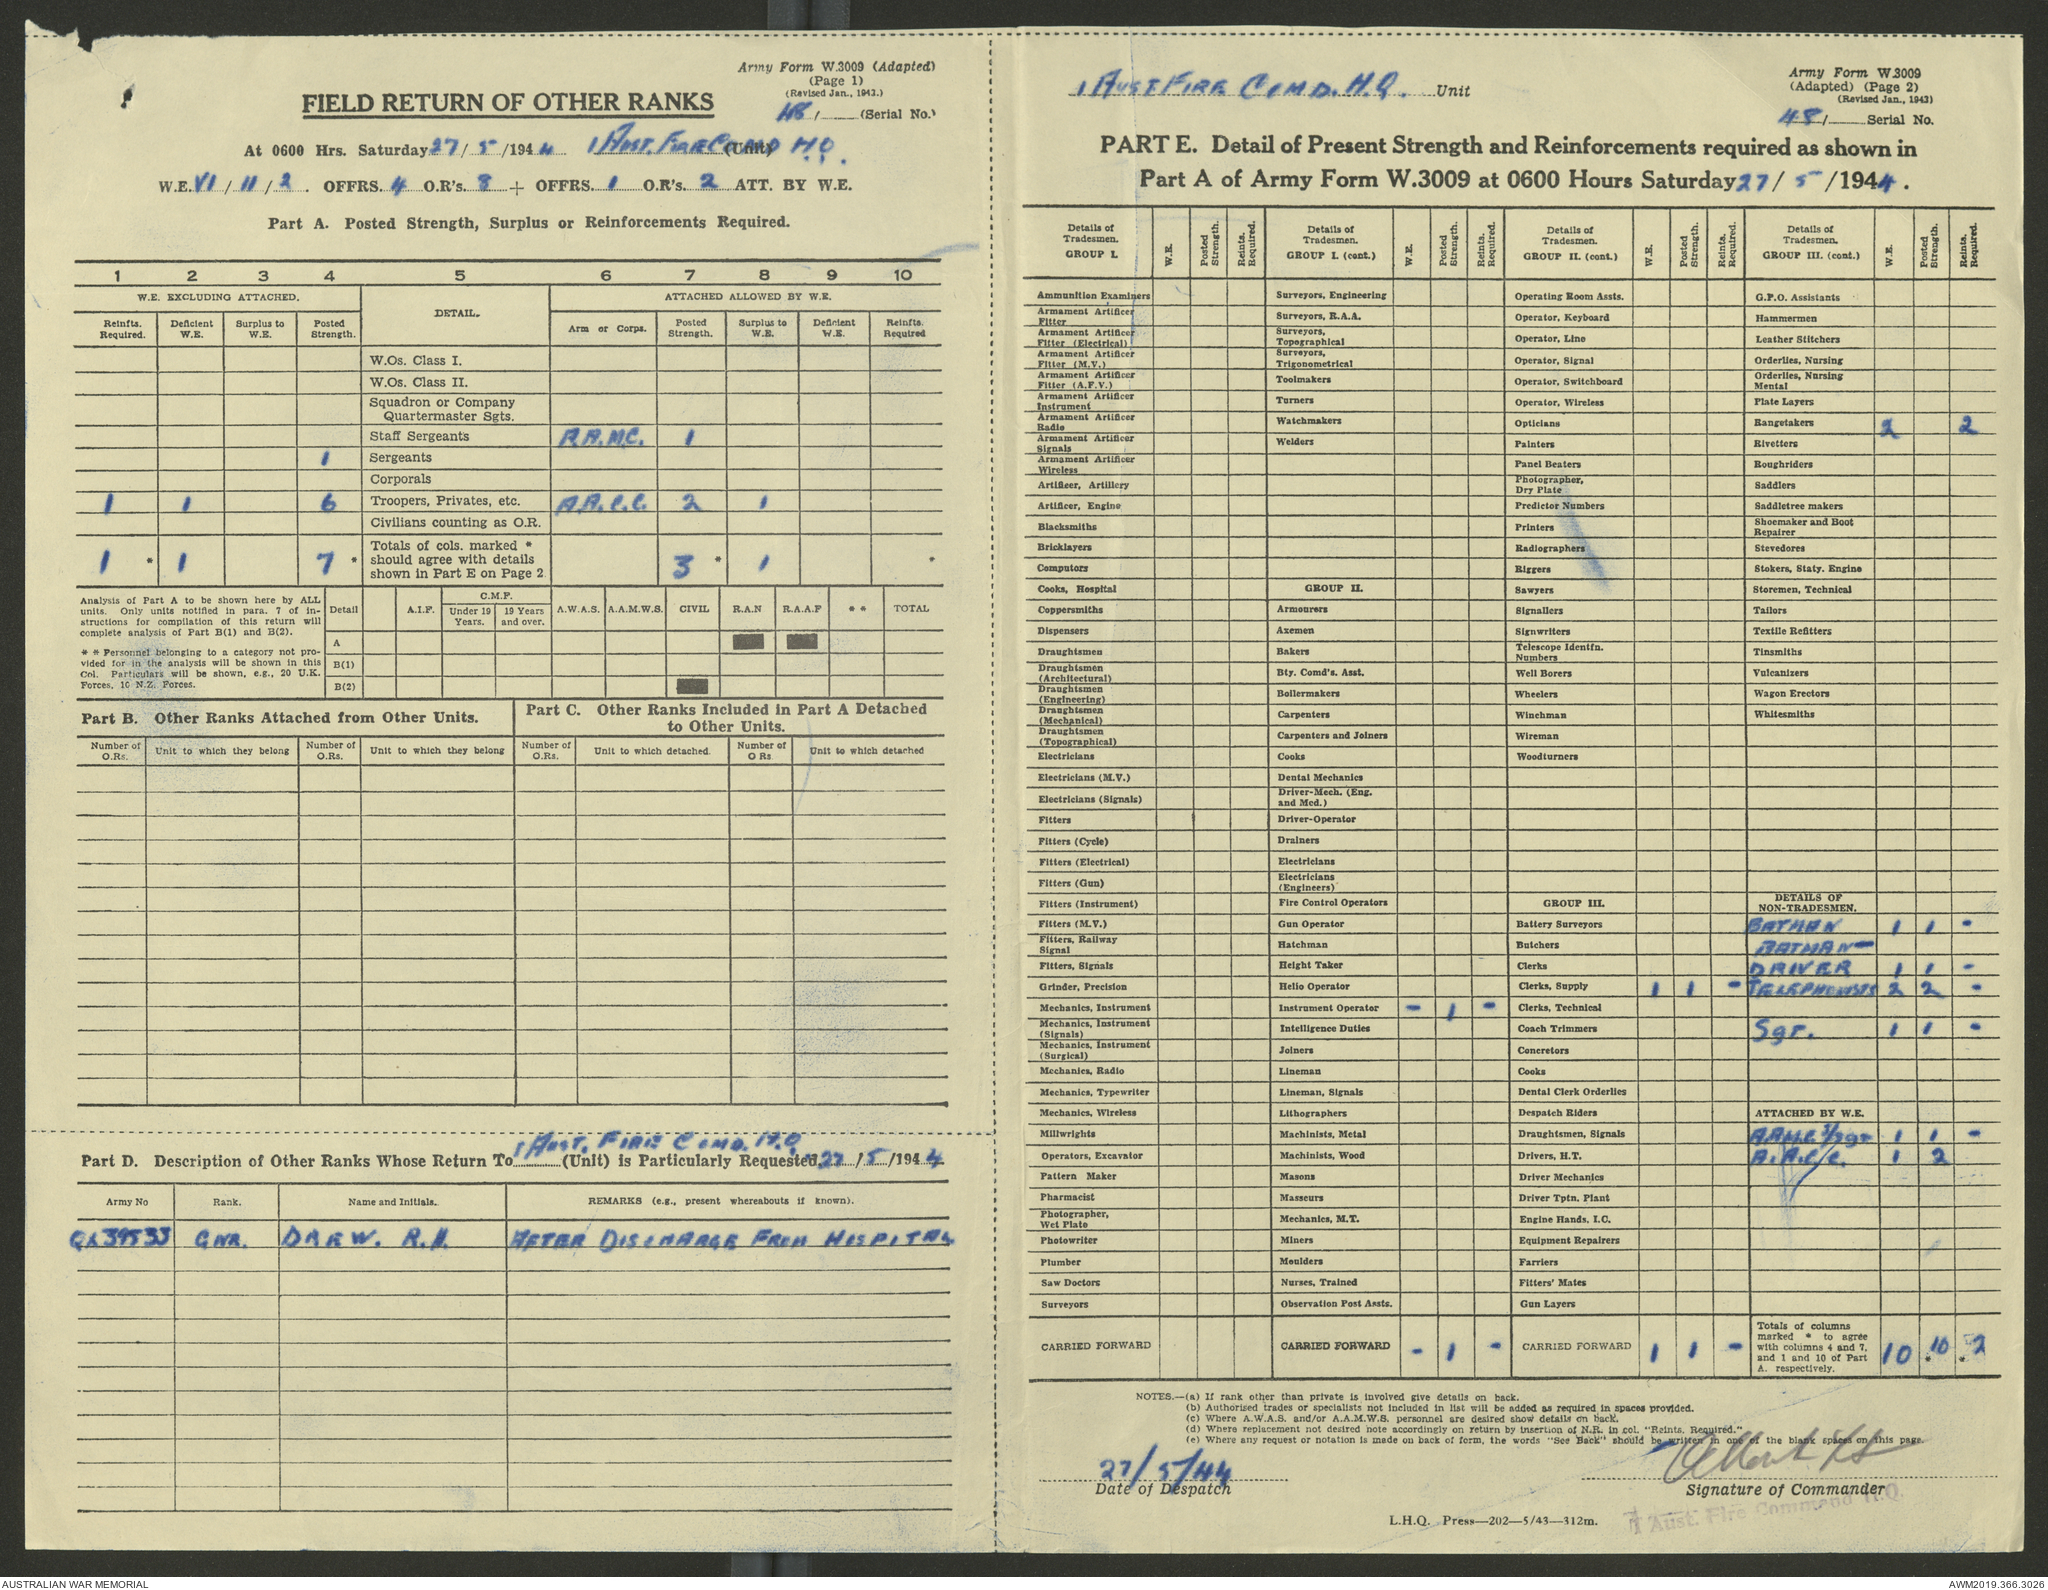 Army Form W.3009 (Adapted)
(Page 1)
(Revised Jan., 1943.)
FIELD RETURN OF OTHER RANKS
48/ (Serial No.)
At 0600 Hrs. Saturday 27/5/1944 1 Aust. Fire Comd H.Q. (Unit)
W.E. VI/11/2. OFFRS. 4 O.R's. 8 + OFFRS. 1 O.R's. 2 ATT. BY W.E.
Part A. Posted Strength, Surplus or Reinforcements Required.
1 2 3 4 5 6 7 8 9 10
W.E. EXCLUDING ATTACHED. DETAIL. ATTACHED ALLOWED BY W.E.
Reinfts. Required. Deficient W.E. Surplus to W.E. Posted Strength. Arm or Corps. Posted Strength. Surplus to W.E. Deficient W.E. Reinfts. Required
W.Os. Class I.
W.Os. Class II.
Squadron or Company
Quartermaster Sgts.
Staff Sergeants A.A.M.C. 1
1 Sergeants
Corporals
1 1 6 Troopers, Privates, etc. A.A.C.C. 2 1
Civilians counting as O.R.
1 * 1 7 * Totals of cols. marked * should agree with details shown in Part E on Page 2 3 * 1 *
Analysis of Part A to be shown here by ALL
units. Only units notified in para. 7 of in-
structions for compilation of this return will
complete analysis of Part B(1) and B(2).
* * Personnel belonging to a category not pro-
vided for in the analysis will be shown in this
Col. Particulars will be shown, e.g., 20 U.K.
Forces, 10 N.Z. Forces.
Detail A.I.F. C.M.F. Under 19 Years. 19 Years and over. A.W.A.S. A.A.M.W.S. CIVIL R.A.N R.A.A.F * * TOTAL
A
B(1)
B(2)
Part B. Other Ranks Attached from Other Units.
Part C. Other Ranks Included in Part A Detached
to Other Units.
Number of O.Rs. Unit to which they belong Number of O.Rs. Unit to which they belong Number of O.Rs. Unit to which detached. Number of O Rs Unit to which detached
1 Aust. Fire Comd. H.Q.
Part D. Description of Other Ranks Whose Return To (Unit) is Particularly Requested 27/5/1944
Army No Rank. Name and Initials. REMARKS (e.g., present whereabouts if known).
QX39533 GNR. DREW. R.H. AFTER DISCHARGE FROM HOSPITAL
1 Aust Fire Comd. H.Q. Unit
Army Form W.3009
(Adapted) (Page 2)
(Revised Jan., 1943)
48/ Serial No.
PART E. Detail of Present Strength and Reinforcements required as shown in
Part A of Army Form W.3009 at 0600 Hours Saturday 27/5/1944.
Details of Tradesmen. GROUP I. W.E. Posted Strength. Reints. Required.
Details of Tradesmen. GROUP I. (cont.) W.E. Posted Strength. Reints. Required.
Details of Tradesmen. GROUP II. (cont.) W.E. Posted Strength. Reints. Required.
Details of Tradesmen. GROUP III. (cont.) W.E. Posted Strength. Reints. Required.
Ammunition Examiners
Armament Artificer Fitter
Armament Artificer Fitter (Electrical)
Armament Artificer Fitter (M.V.)
Armament Artificer Fitter (A.F.V.)
Armament Artificer Instrument
Armament Artificer Radio
Armament Artificer Signals
Armament Artificer Wireless
Artificer, Artillery
Artificer, Engine
Blacksmiths
Bricklayers
Computors
Cooks, Hospital
Coppersmiths
Dispensers
Draughtsmen
Draughtsmen (Architectural)
Draughtsmen (Engineering)
Draughtsmen (Mechanical)
Draughtsmen (Topographical)
Electricians
Electricians (M.V.)
Electricians (Signals)
Fitters
Fitters (Cycle)
Fitters (Electrical)
Fitters (Gun)
Fitters (Instrument)
Fitters (M.V.)
Fitters, Railway Signal
Fitters, Signals
Grinder, Precision
Mechanics, Instrument
Mechanics, Instrument (Signals)
Mechanics, Instrument (Surgical)
Mechanics, Radio
Mechanics, Typewriter
Mechanics, Wireless
Millwrights
Operators, Excavator
Pattern Maker
Pharmacist
Photographer, Wet Plate
Photowriter
Plumber
Saw Doctors
Surveyors
CARRIED FORWARD
Surveyors, Engineering
Surveyors, R.A.A.
Surveyors, Topographical
Surveyors, Trigonometrical
Toolmakers
Turners
Watchmakers
Welders
GROUP II.
Armourers
Axemen
Bakers
Bty. Comd's. Asst.
Boilermakers
Carpenters
Carpenters and Joiners
Cooks
Dental Mechanics
Driver-Mech. (Eng. and Med.)
Driver-Operator
Drainers
Electricians
Electricians (Engineers)
Fire Control Operators
Gun Operator
Hatchman
Height Taker
Helio Operator
Instrument Operator - 1 -
Intelligence Duties
Joiners
Lineman
Lineman, Signals
Lithographers
Machinists, Metal
Machinists, Wood
Masons
Masseurs
Mechanics, M.T.
Miners
Moulders
Nurses, Trained
Observation Post Assts.
CARRIED FORWARD - 1 -
Operating Room Assts.
Operator, Keyboard
Operator, Line
Operator, Signal
Operator, Switchboard
Operator, Wireless
Opticians
Painters
Panel Beaters
Photographer, Dry Plate
Predictor Numbers
Printers
Radiographers
Riggers
Sawyers
Signallers
Signwriters
Telescope Identfn. Numbers
Well Borers
Wheelers
Winchman
Wireman
Woodturners
GROUP III.
Battery Surveyors
Butchers
Clerks
Clerks, Supply 1 1 -
Clerks, Technical
Coach Trimmers
Concretors
Cooks
Dental Clerk Orderlies
Despatch Riders
Draughtsmen, Signals
Drivers, H.T.
Driver Mechanics
Driver Tptn. Plant
Engine Hands, I.C.
Equipment Repairers
Farriers
Fitters' Mates
Gun Layers
CARRIED FORWARD 1 1 -
G.P.O. Assistants
Hammermen
Leather Stitchers
Orderlies, Nursing
Orderlies, Nursing Mental
Plate Layers
Rangetakers 2 2
Rivetters
Roughriders
Saddlers
Saddletree makers
Shoemaker and Boot Repairer
Stevedores
Stokers, Staty. Engine
Storemen, Technical
Tailors
Textile Refitters
Tinsmiths
Vulcanizers
Wagon Erectors
Whitesmiths
DETAILS OF NON-TRADESMEN.
BATMAN 1 1 -
BATMAN-
DRIVER 1 1 -
TELEPHONISTS 2 2 -
Sgt. 1 1 -
ATTACHED BY W.E.
A.A.M.C. S/Sgt 1 1 -
A.A.C.C. 1 2
Totals of columns marked * to agree with columns 4 and 7, and 1 and 10 of Part A. respectively. 10 10 * 2 *
NOTES.—(a) If rank other than private is involved give details on back.
(b) Authorised trades or specialists not included in list will be added as required in spaces provided.
(c) Where A.W.A.S. and/or A.A.M.W.S. personnel are desired show details on back.
(d) Where replacement not desired note accordingly on return by insertion of N.R. in col. "Reints. Required."
(e) Where any request or notation is made on back of form, the words "See Back" should be written in one of the blank spaces on this page.
27/5/44
Date of Despatch
Signature of Commander
1 Aust. Fire Command H.Q.
L.H.Q. Press—202—5/43—312m.
AUSTRALIAN WAR MEMORIAL
AWM2019.366.3026